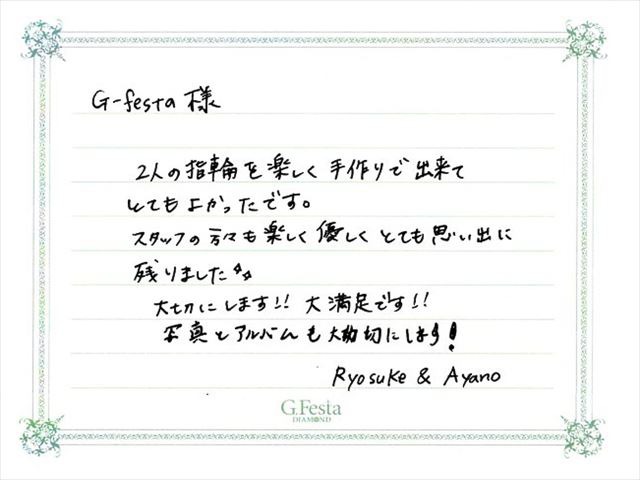 G-festa 様
2人の指輪を楽しく手作りで出来て
とてもよかったです。
スタッフの方々も楽しく優しくとても思い出に
残りました
大切にします!! 大満足です!!
写真とアルバムも大切にします!
Ryosuke & Ayano
G.Festa
DIAMOND